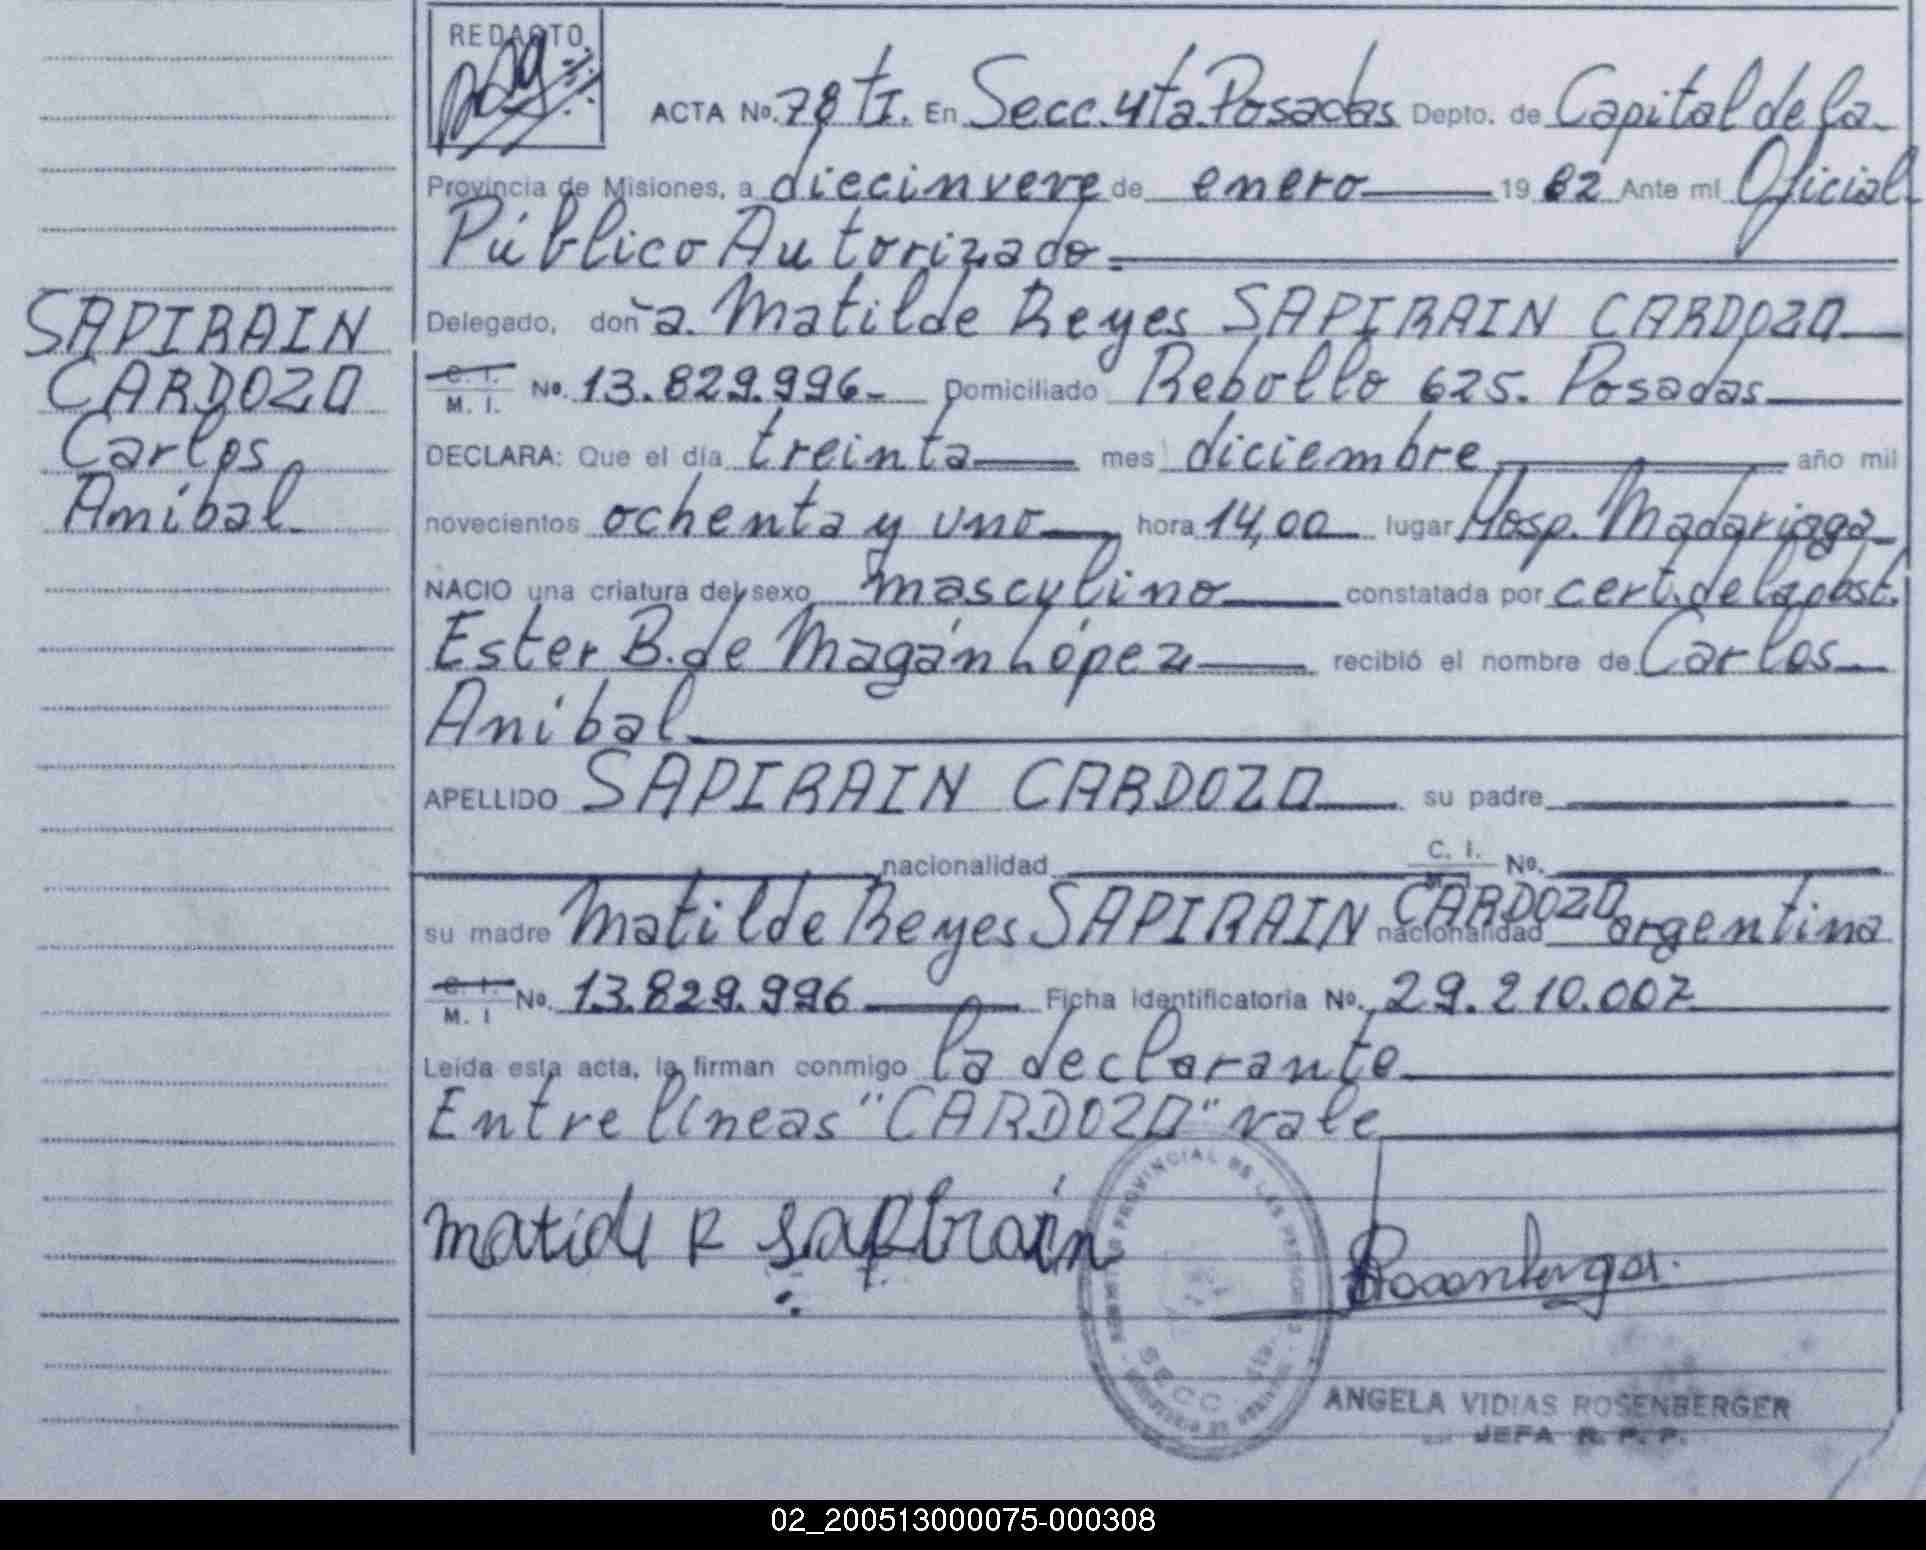 REDACTO
ACTA No. 78 tI. En Secc. 4ta. Posadas Depto. de Capital de la
Provincia de Misiones, a diecinueve de enero 19 82 Ante mí Oficial
Público Autorizado.
Delegado, doña. Matilde Reyes SAPIRAIN CARDOZO
C. I. M. I. No. 13.829.996- Domiciliado Rebollo 625. Posadas
DECLARA: Que el día treinta mes diciembre año mil
novecientos ochenta y uno hora 14,00 lugar Hosp. Madariaga
NACIO una criatura del sexo masculino constatada por cert. de la obst.
Ester B. de Magán López recibió el nombre de Carlos
Aníbal
APELLIDO SAPIRAIN CARDOZO su padre
nacionalidad C. I. M. I. No.
su madre Matilde Reyes SAPIRAIN CARDOZO nacionalidad argentina
C. I. M. I No. 13.829.996 Ficha identificatoria No. 29.210.007
Leída esta acta, la firman conmigo la declarante
Entre líneas "CARDOZO" vale
SAPIRAIN
CARDOZO
Carlos
Aníbal
matide R Sapirain
Rosenberger
REGISTRO PROVINCIAL DE LAS PERSONAS
SECC. 4ta.
ANGELA VIDIAS ROSENBERGER
JEFA R. P. P.
02_200513000075-000308